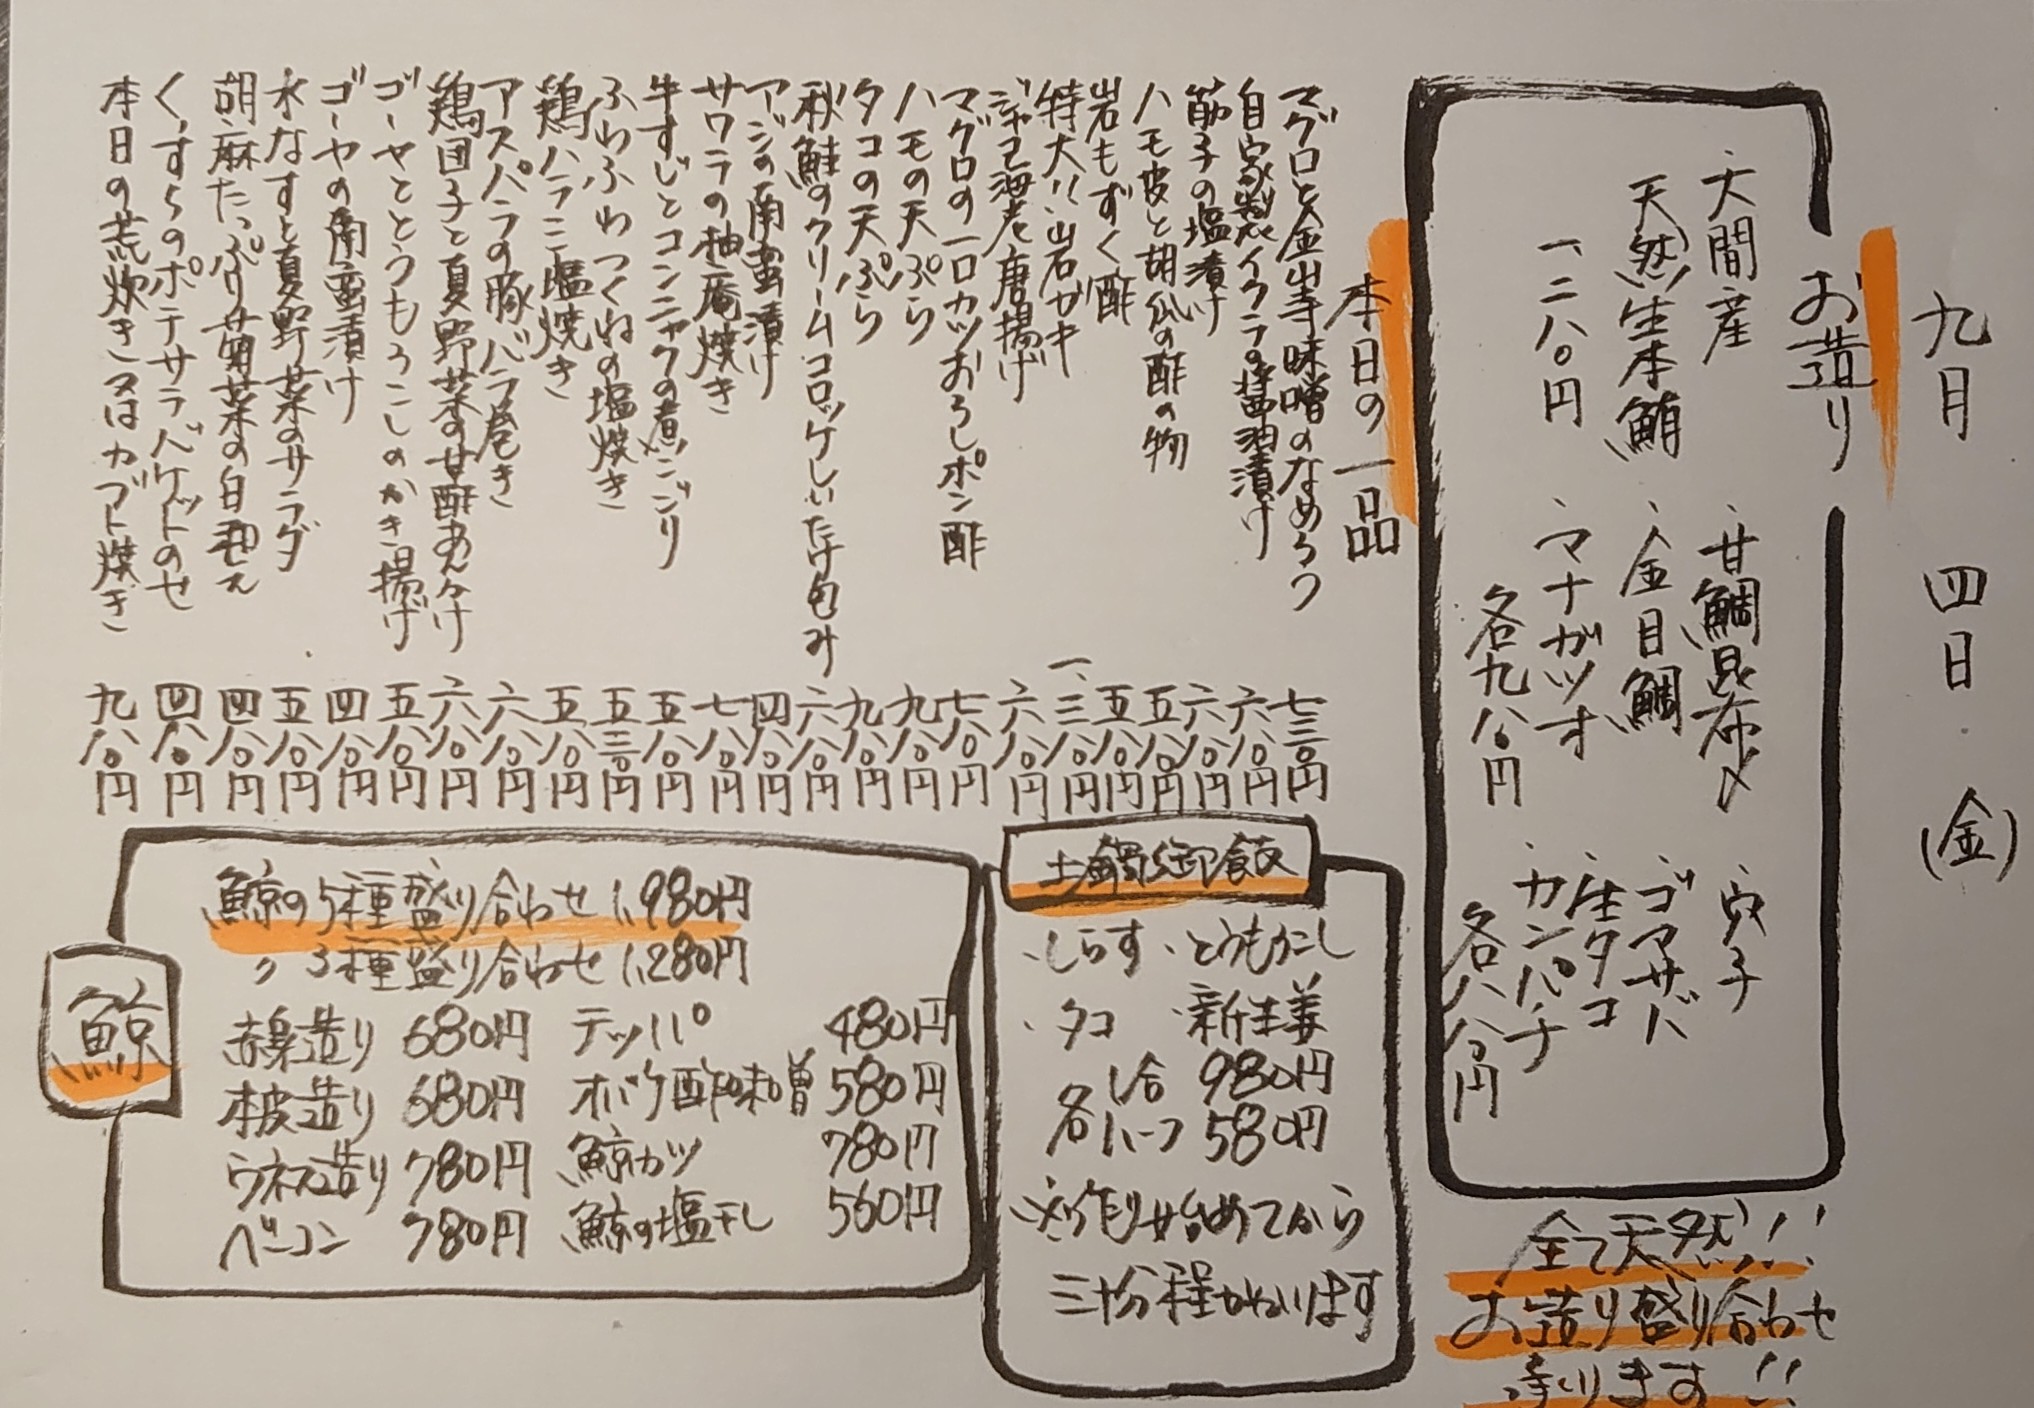 九月 四日 (金)
お造り
・大間産
天然生本鮪
一二八〇円
・甘鯛昆布〆
・金目鯛
・マナガツオ
各九八〇円
・穴子
・ゴマサバ
・生タコ
・カンパチ
各八八〇円
全て天然!!
お造り盛り合わせ
承ります!!
本日の一品
マグロと金山寺味噌のなめろう 七三〇円
自家製イクラの醤油漬け 六八〇円
筋子の塩漬け 六八〇円
ハモ皮と胡瓜の酢の物 五八〇円
岩もずく酢 五八〇円
特大!!岩ガキ 一、三八〇円
ジャコ海老唐揚げ 六八〇円
マグロの一口カツおろしポン酢 七八〇円
ハモの天ぷら 九八〇円
タコの天ぷら 九八〇円
秋鮭のクリームコロッケしいたけ包み 六八〇円
アジの南蛮漬け 四八〇円
サワラの柚庵焼き 七八〇円
牛すじとコンニャクの煮こごり 五八〇円
ふわふわつくねの塩焼き 五三〇円
鶏ハラミ塩焼き 五八〇円
アスパラの豚バラ巻き 六八〇円
鶏団子と夏野菜の甘酢あんかけ 六八〇円
ゴーヤととうもろこしのかき揚げ 五八〇円
ゴーヤの南蛮漬け 四八〇円
水なすと夏野菜のサラダ 五八〇円
胡麻たっぷり菊菜の白和え 四八〇円
くずらのポテサラバケットのせ 四八〇円
本日の荒炊き又はカブト焼き 九八〇円
土鍋御飯
・しらす ・とうもろこし
・タコ ・新生姜
各 1合 980円
ハーフ 580円
※作り始めてから
三十分程かかります
鯨
鯨の5種盛り合わせ 1,980円
〃 3種盛り合わせ 1,280円
赤身造り 680円 テッパ 480円
本皮造り 680円 オバケ酢味噌 580円
ウネス造り 780円 鯨カツ 780円
ベーコン 780円 鯨の塩干し 560円